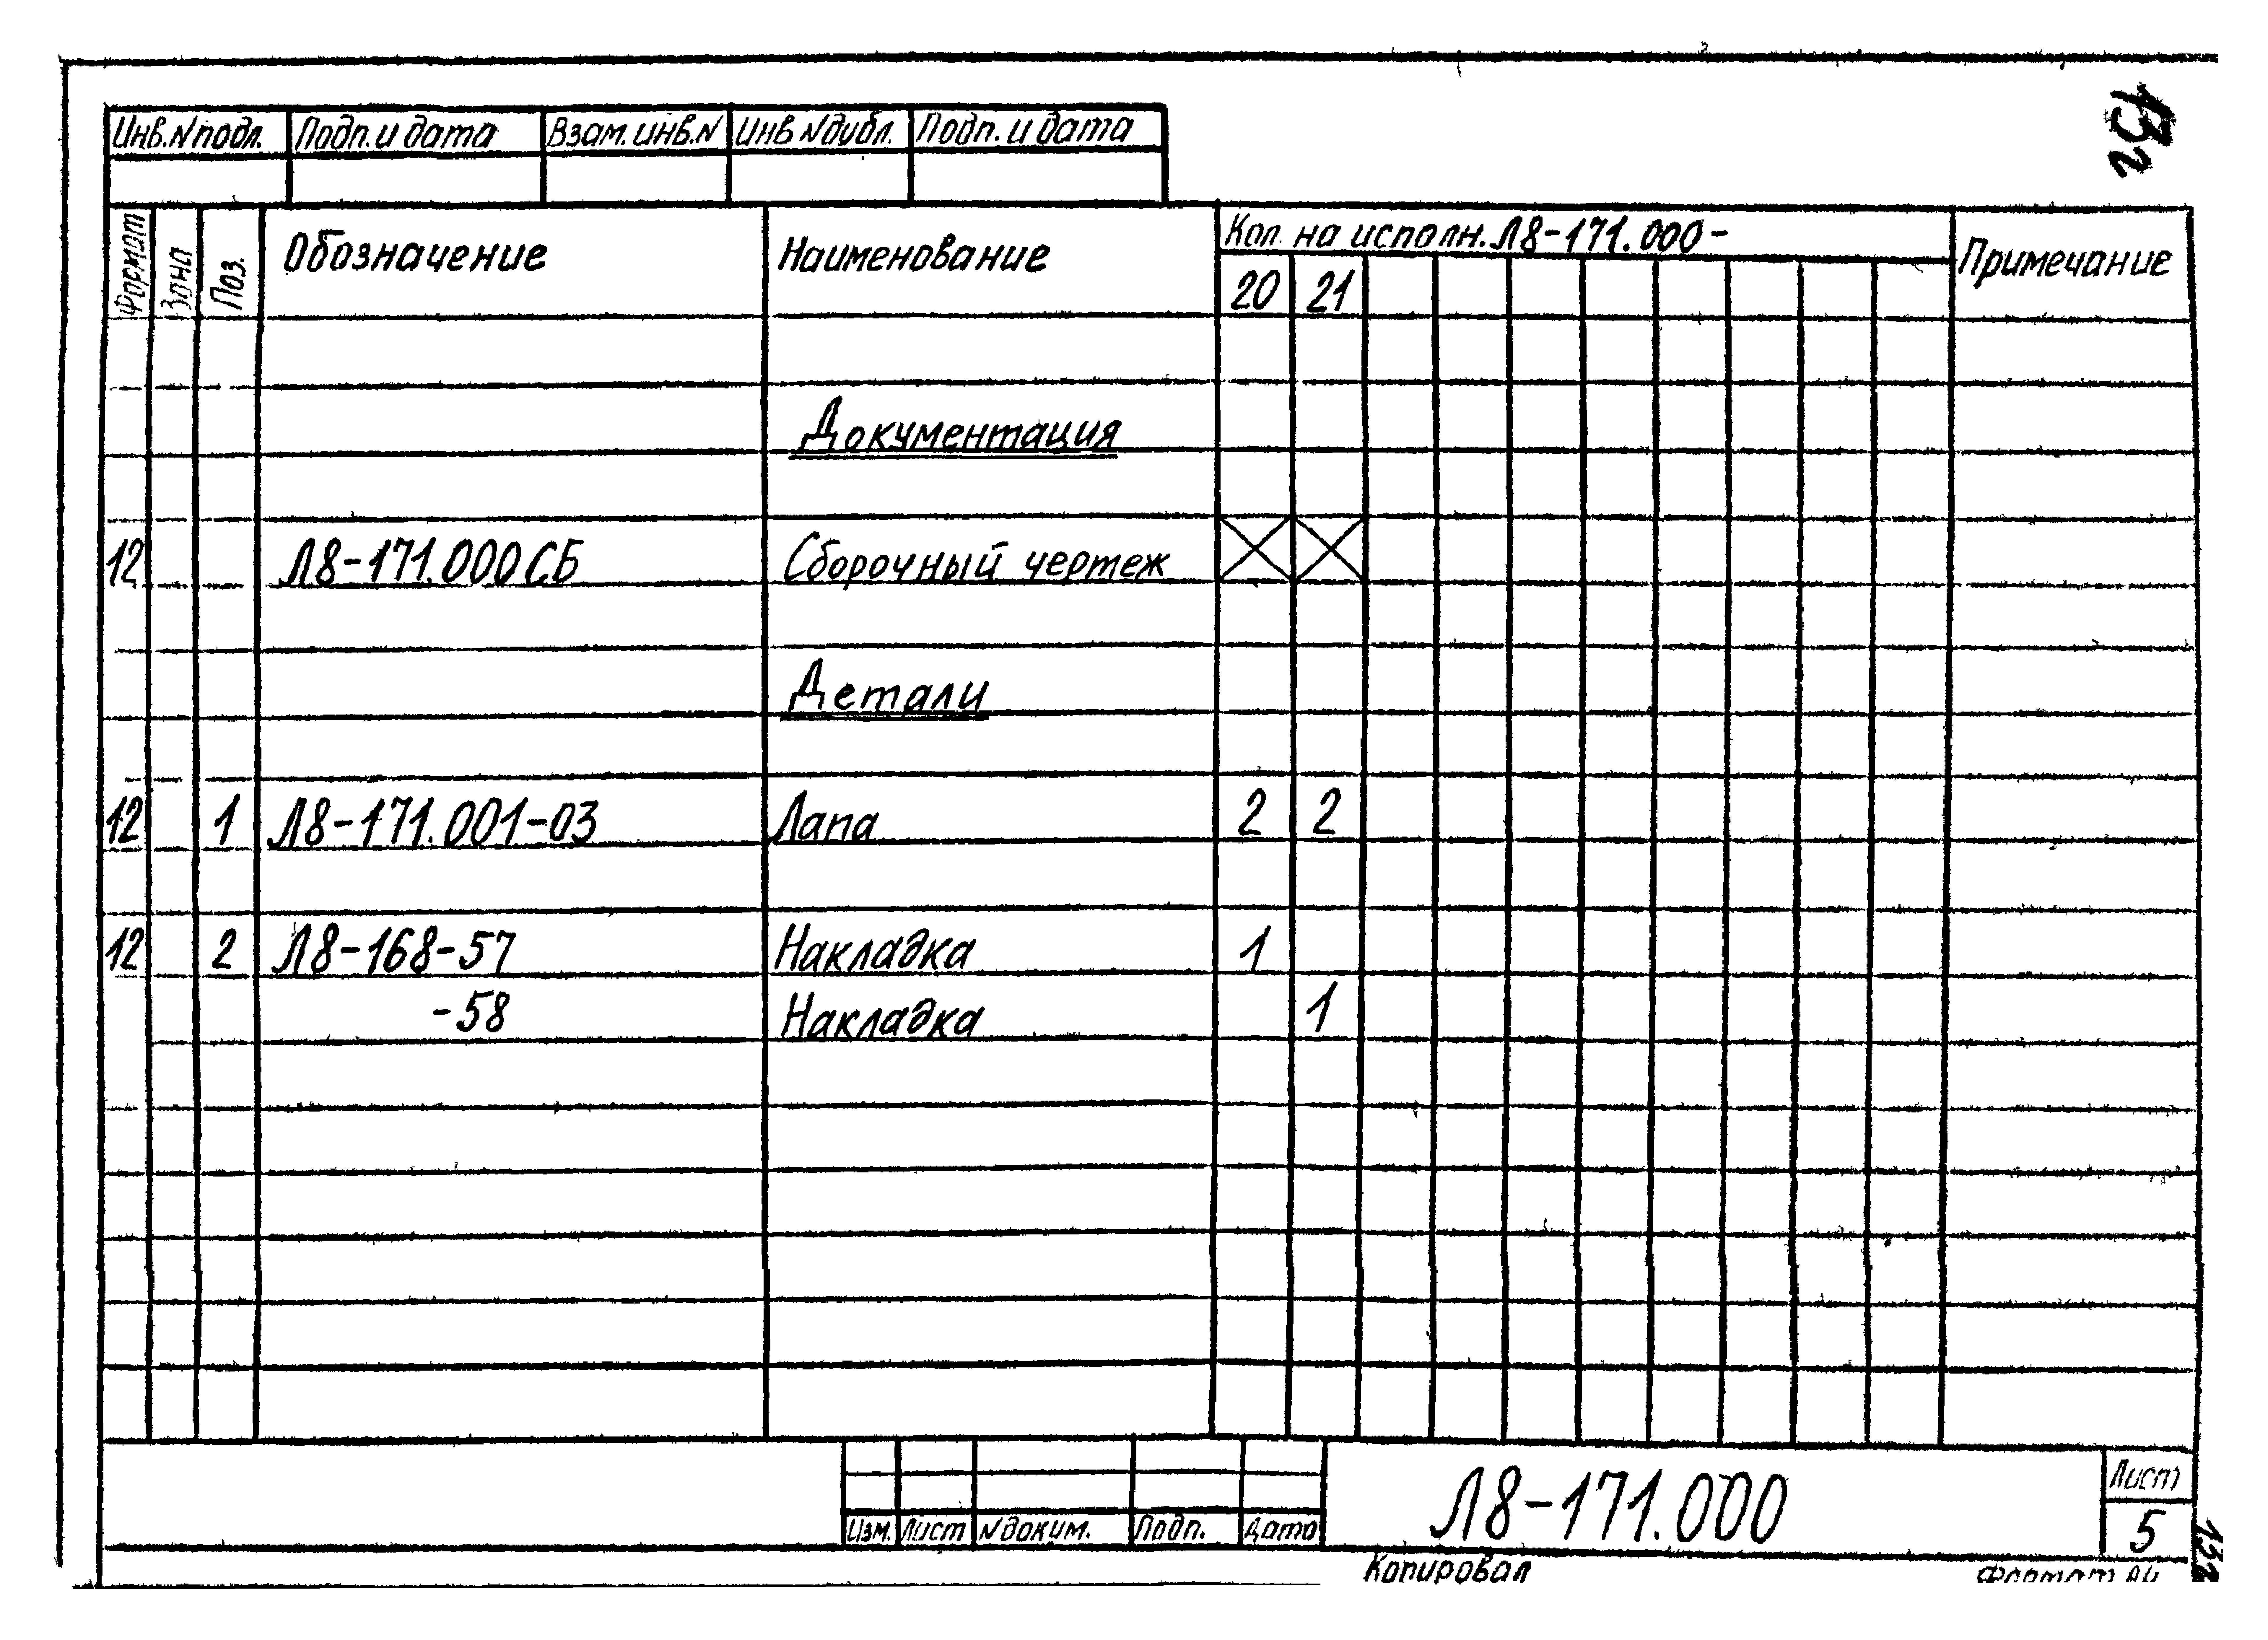 Инв.№подл. Подп. и дата Взам. инв.№ Инв №дубл. Подп. и дата
Формат Зона Поз. Обозначение Наименование Кол. на исполн. Л8-171.000- Примечание
20 21
Документация
12 Л8-171.000 СБ Сборочный чертеж
Детали
12 1 Л8-171.001-03 Лапа 2 2
12 2 Л8-168-57 Накладка 1
-58 Накладка 1
Изм. Лист №доким. Подп. Дата
Л8-171.000
Лист
5
Копировал Формат А4